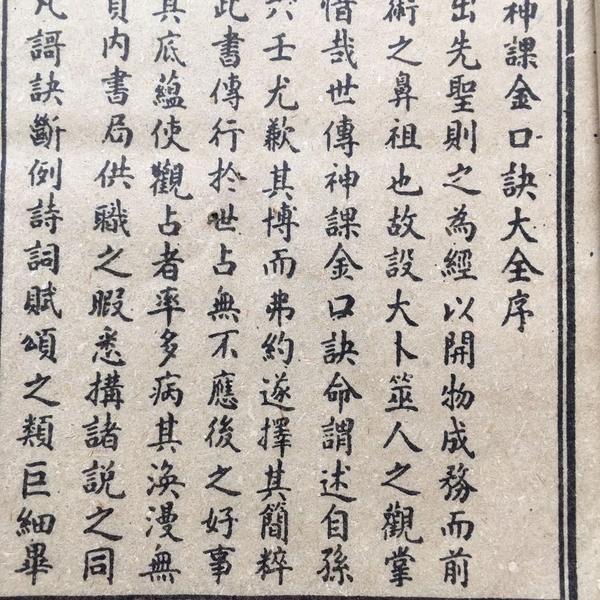 神課金口訣大全序
出先聖則之為經以開物成務而前
術之鼻祖也故設大卜筮人之觀掌
惜哉世傳神課金口訣命謂述自孫
六壬尤歉其博而弗約遂擇其簡粹
此書傳行於世占無不應後之好事
其底蘊使觀占者率多病其渙漫無
內書局供職之暇悉搆諸說之同
凡謌訣斷例詩詞賦頌之類巨細畢